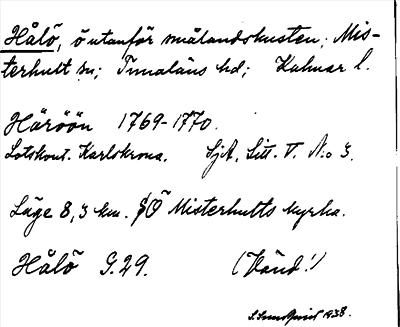 Hålö, ö utanför smålandskusten; Mis-
terhult sn; Tunaläns hd; Kalmar l.
Häröön 1769-1770.
Lotskont. Karlskrona. SjA, Litt. V. No 3.
Läge 8,3 km. SÖ Misterhults kyrka.
Hålö G.29. (Vänd!)
1938.